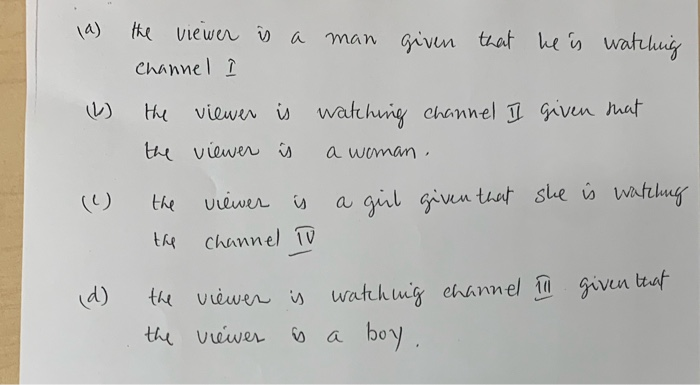 (a) the viewer is a man given that he is watching
channel I
(b) the viewer is watching channel II given that
the viewer is a woman.
(c) the viewer is a girl given that she is watching
the channel IV
(d) the viewer is watching channel III given that
the viewer is a boy.